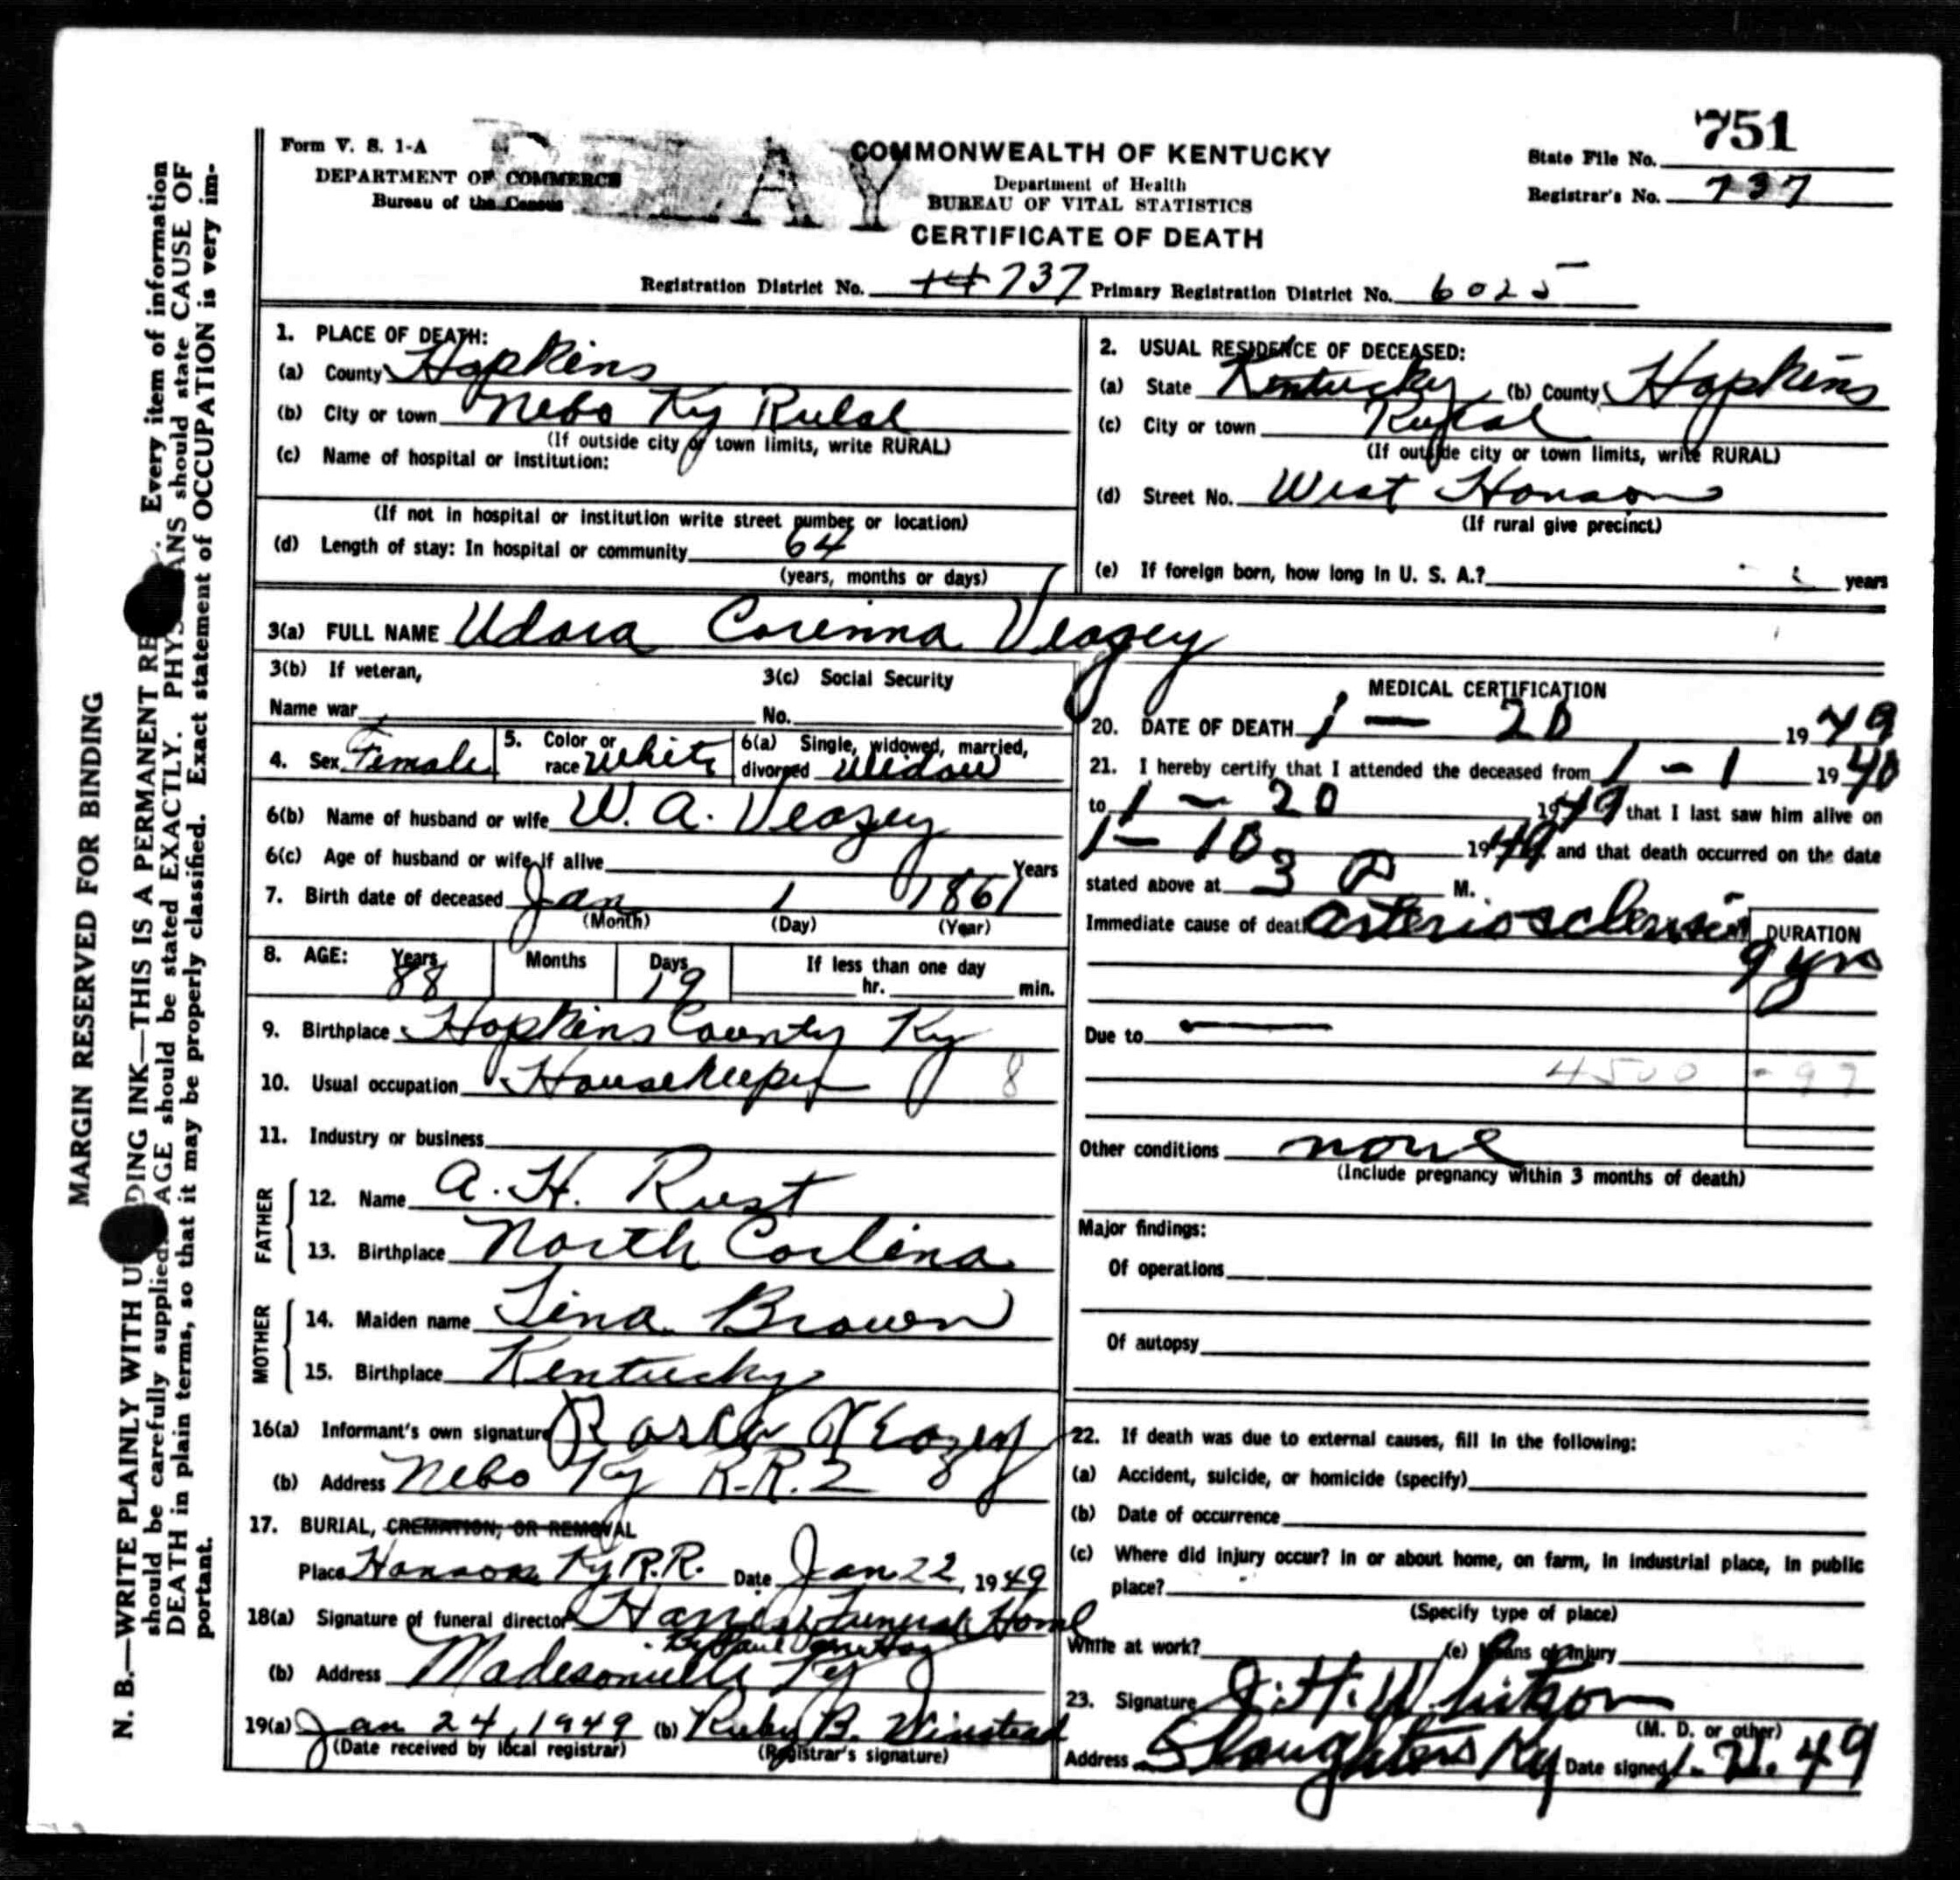 751
Form V. S. 1-A
DEPARTMENT OF COMMERCE
Bureau of the Census
DELAY
COMMONWEALTH OF KENTUCKY
Department of Health
BUREAU OF VITAL STATISTICS
CERTIFICATE OF DEATH
State File No.
Registrar's No. 737
Registration District No. 14 737 Primary Registration District No. 6025
1. PLACE OF DEATH:
(a) County Hopkins
(b) City or town Nebo Ky Rulal
(If outside city or town limits, write RURAL)
(c) Name of hospital or institution:
(If not in hospital or institution write street number or location)
(d) Length of stay: In hospital or community 64
(years, months or days)
2. USUAL RESIDENCE OF DECEASED:
(a) State Kentucky (b) County Hopkins
(c) City or town Rural
(If outside city or town limits, write RURAL)
(d) Street No. West Hanson
(If rural give precinct)
(e) If foreign born, how long in U. S. A.? years
3(a) FULL NAME Udora Corinna Veazey
3(b) If veteran,
Name war
3(c) Social Security
No.
4. Sex Female
5. Color or race White
6(a) Single, widowed, married, divorced Widow
6(b) Name of husband or wife W. A. Veazey
6(c) Age of husband or wife if alive Years
7. Birth date of deceased Jan 1 1861
(Month) (Day) (Year)
8. AGE: Years 88 Months Days 19 If less than one day
hr. min.
9. Birthplace Hopkins County Ky
10. Usual occupation Housekeeper 8
11. Industry or business
FATHER
12. Name A. H. Rust
13. Birthplace North Corlina
MOTHER
14. Maiden name Tina Brown
15. Birthplace Kentucky
16(a) Informant's own signature Veazey
(b) Address Nebo Ky R.R. 2
17. BURIAL, CREMATION, OR REMOVAL
Place Hanson Ky R.R. Date Jan 22, 1949
18(a) Signature of funeral director Harris Funeral Home
(b) Address Madesonville Ky
19(a) Jan 24, 1949 (b) Ruby B. Winstead
(Date received by local registrar) (Registrar's signature)
MEDICAL CERTIFICATION
20. DATE OF DEATH 1 - 20 1949
21. I hereby certify that I attended the deceased from 1 - 1 1940
to 1 - 20 1949 that I last saw him alive on
1 - 10 1949 and that death occurred on the date
stated above at 3 P M.
Immediate cause of death arteriosclerosis
DURATION
9 yrs
Due to
4500 - 97
Other conditions none
(Include pregnancy within 3 months of death)
Major findings:
Of operations
Of autopsy
22. If death was due to external causes, fill in the following:
(a) Accident, suicide, or homicide (specify)
(b) Date of occurrence
(c) Where did injury occur? In or about home, on farm, in industrial place, in public
place?
(Specify type of place)
While at work? (e) Means of injury
23. Signature
(M. D. or other)
Address Slaughters Ky Date signed
MARGIN RESERVED FOR BINDING
N. B.—WRITE PLAINLY WITH DING INK—THIS IS A PERMANENT RE Every item of information
should be carefully supplied. AGE should be stated EXACTLY. PHYS ANS should state CAUSE OF
DEATH in plain terms, so that it may be properly classified. Exact statement of OCCUPATION is very im-
portant.